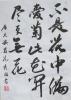 不是花中偏
愛菊此花開
尽更无花